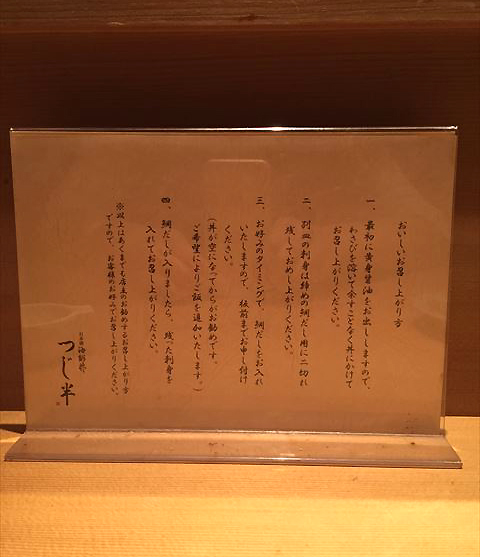 おいしいお召し上がり方
一、最初に黄身醤油をお出ししますので、
わさびを溶いて余すことなく丼にかけて
お召し上がりください。
二、別皿の刺身は締めの鯛だし用に二切れ
残しておめし上がりください。
三、お好みのタイミングで、鯛だしをお入れ
いたしますので、板前までお申し付け
ください。
(丼が空になってからがお勧めです。
ご希望によりご飯も追加いたします。)
四、鯛だしが入りましたら、残った刺身を
入れてお召し上がりください。
※以上はあくまでも店主のお勧めするお召し上がり方
ですので、お客様のお好みでお召し上がりください。
日本橋海鮮丼
つじ半